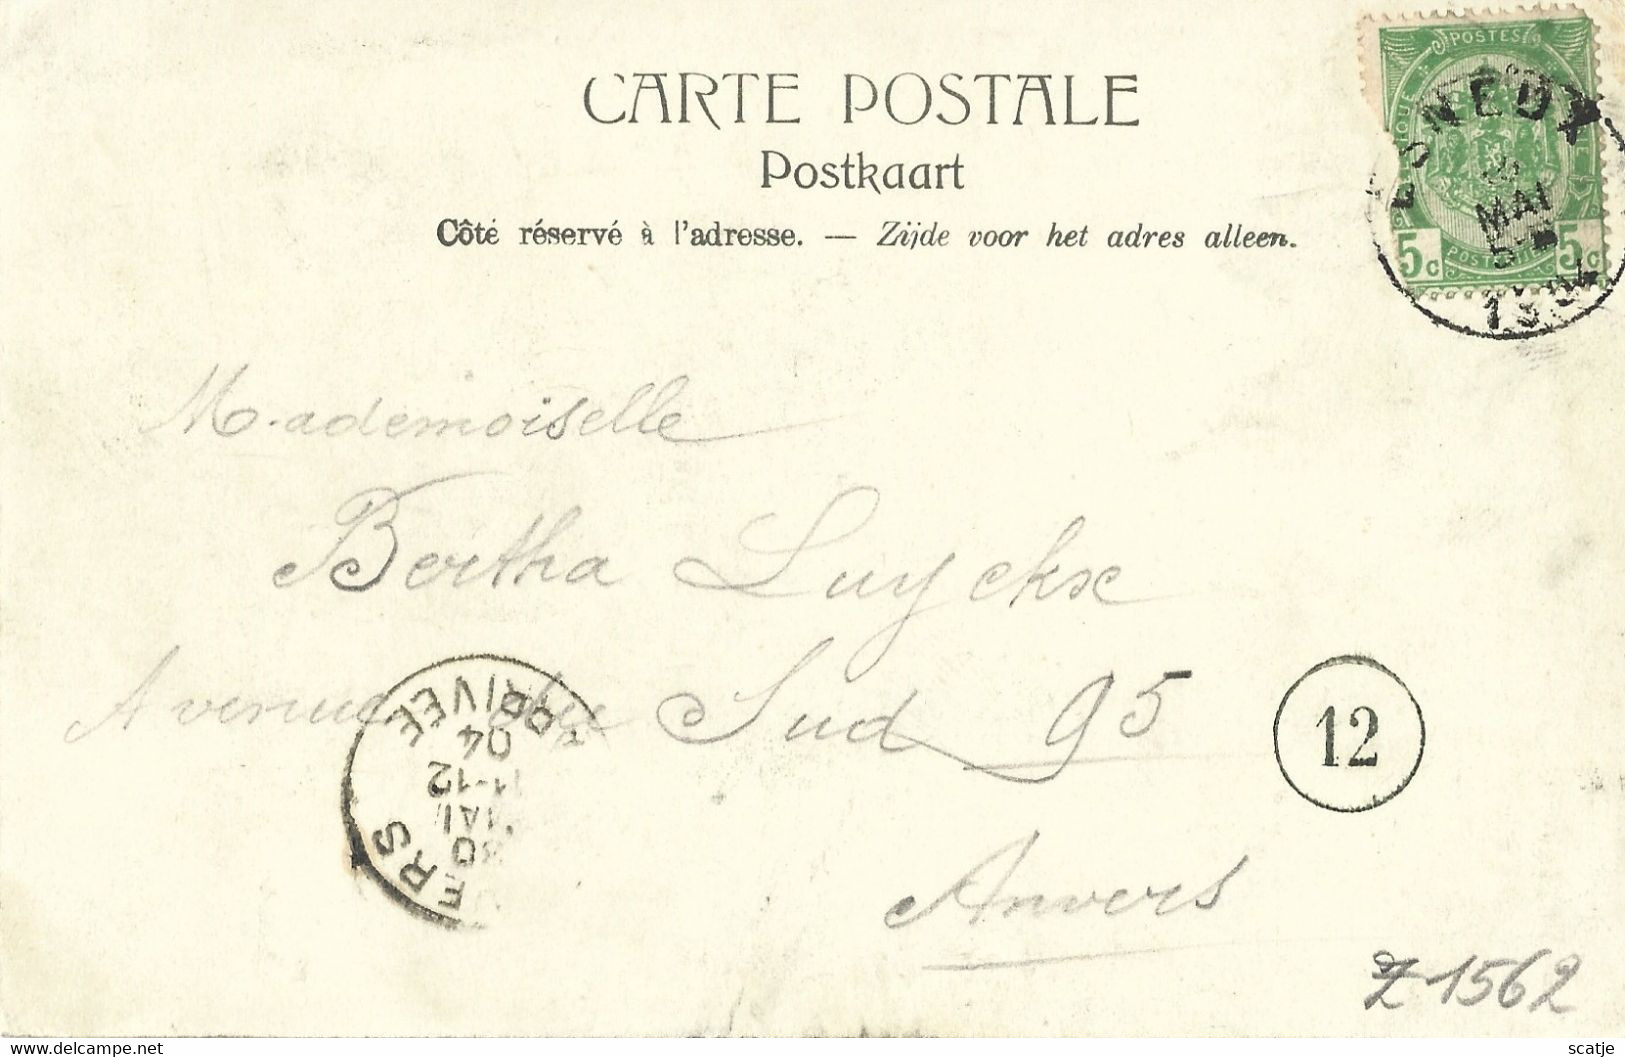 CARTE POSTALE
Postkaart
Côté réservé à l'adresse. — Zijde voor het adres alleen.
POSTES
5c 5c
MAI
Mademoiselle
Bertha Luyckx
Avenue du Sud 95
Anvers
12
ERS ARRIVÉE
04
11-12
MAI
30
Z 1562
delcampe.net
scatje